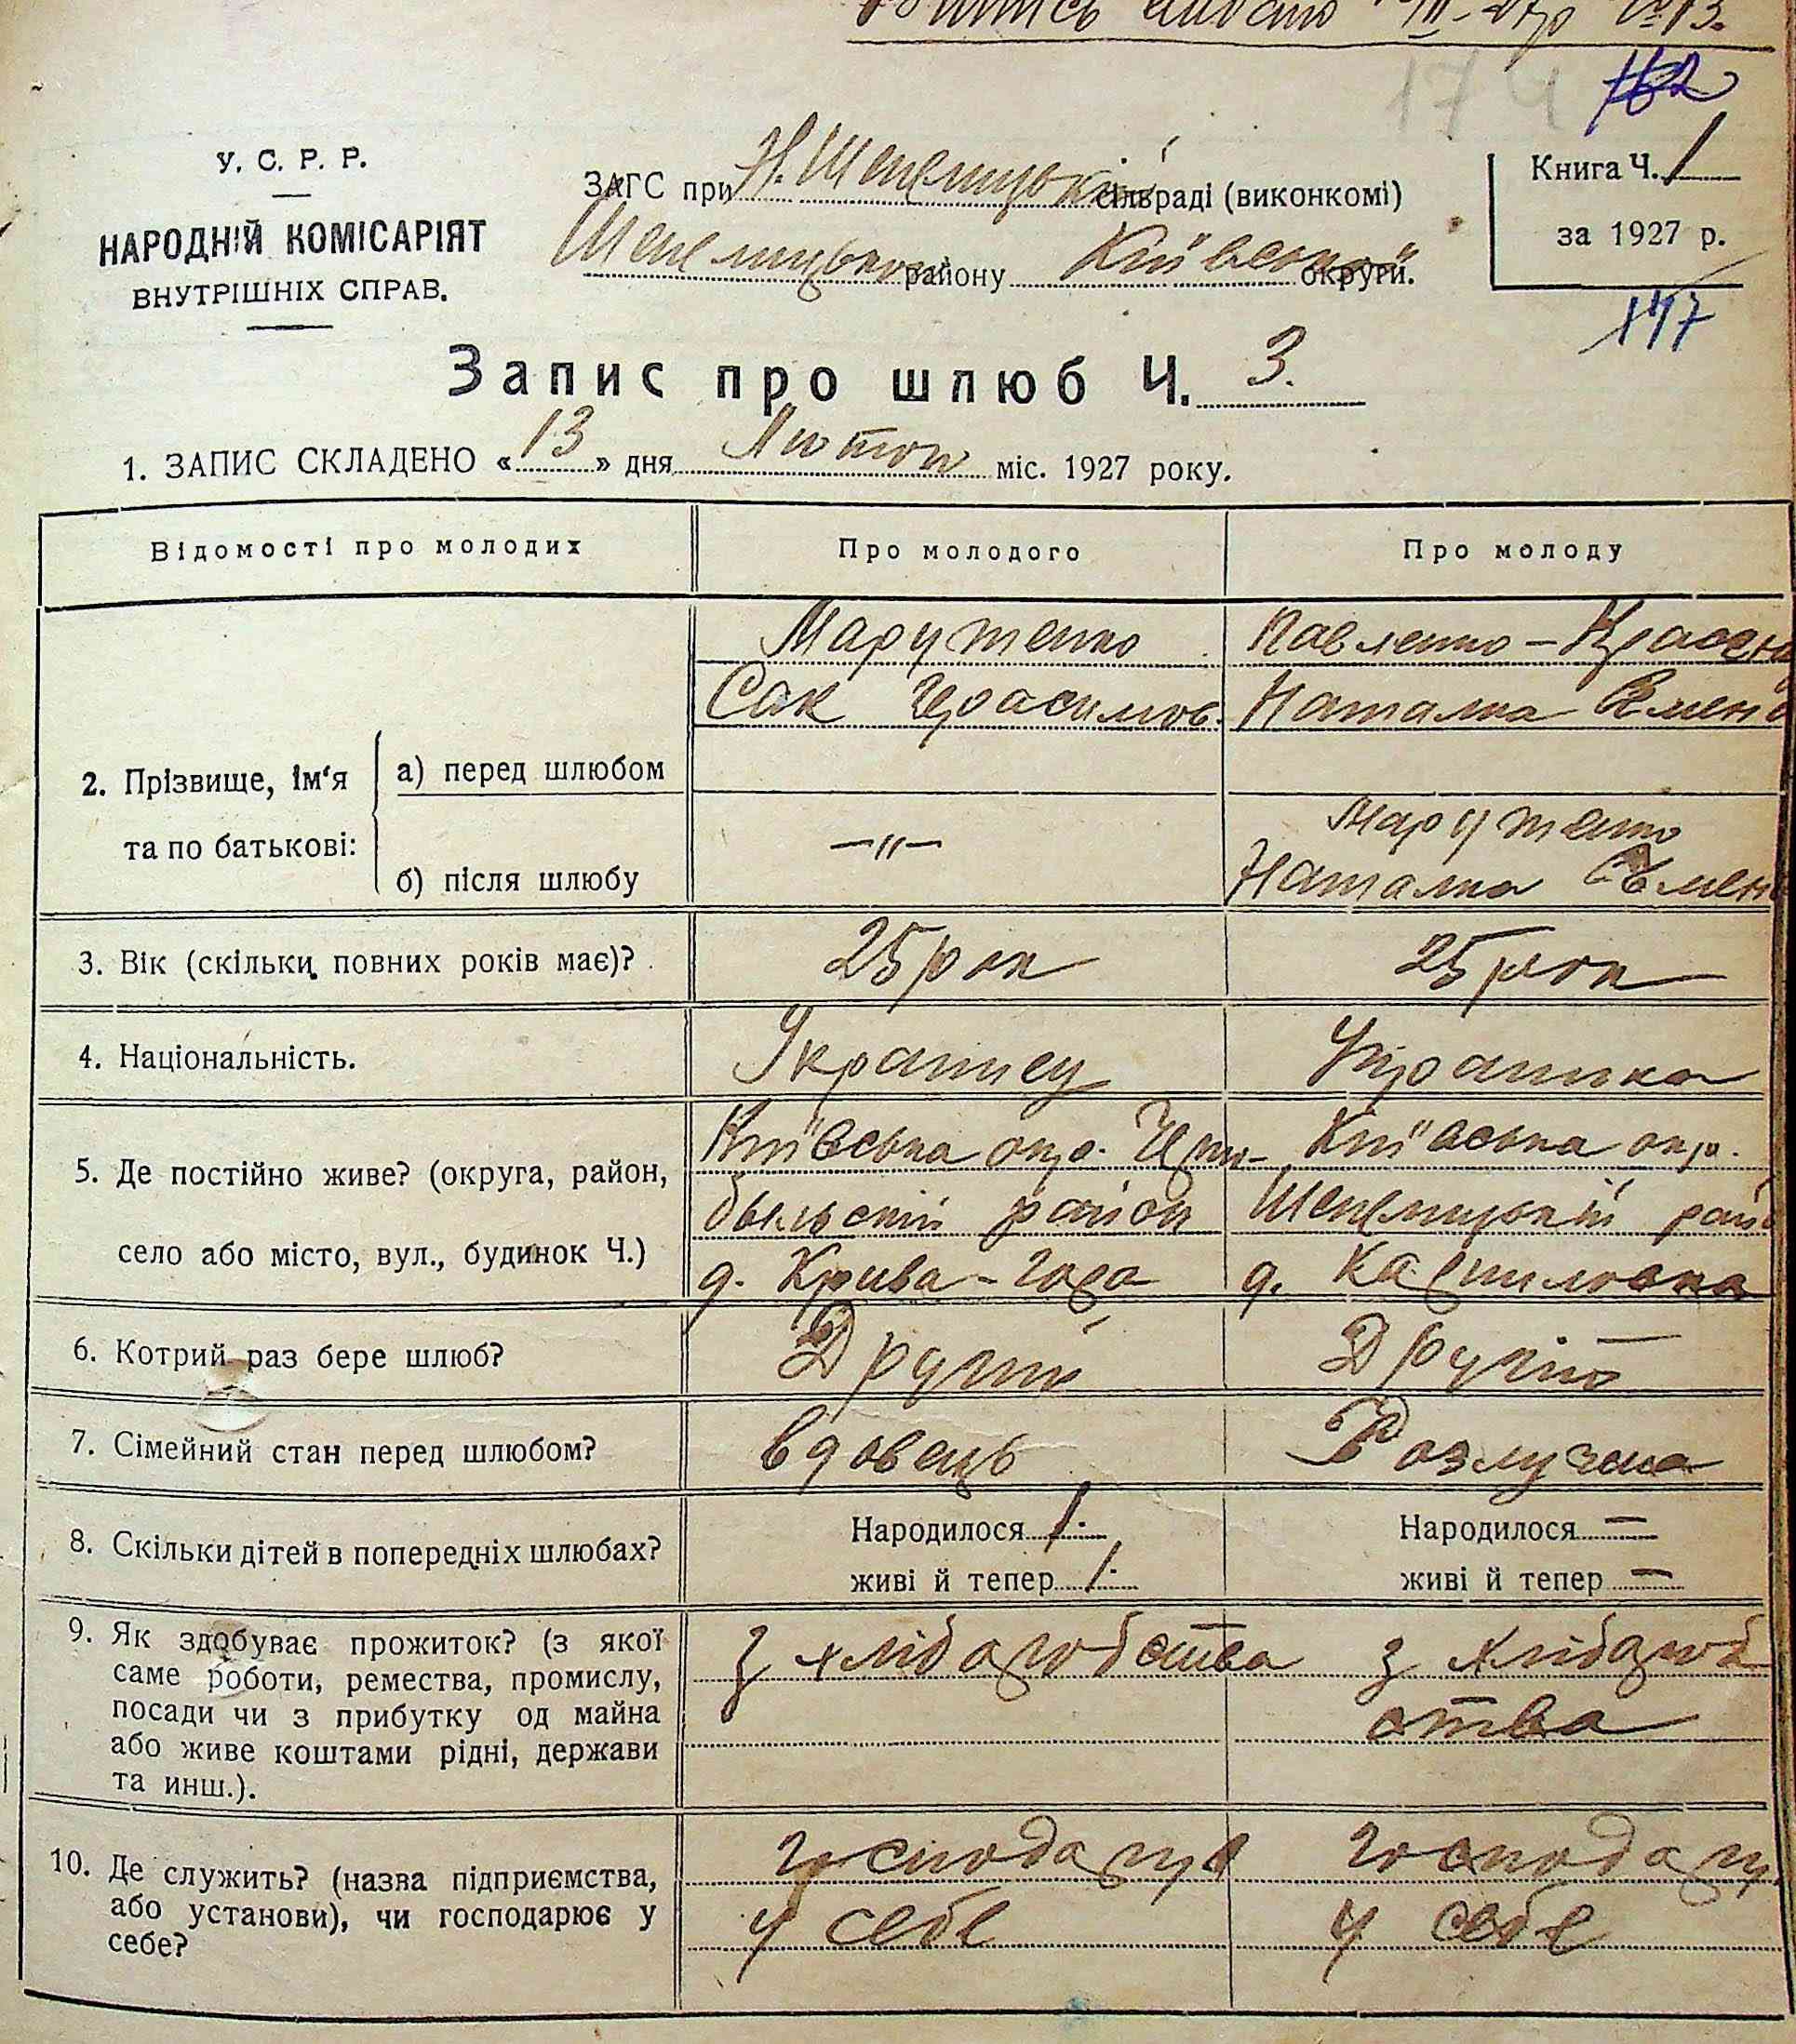 У. С. Р. Р.
НАРОДНІЙ КОМІСАРІЯТ
ВНУТРІШНІХ СПРАВ.
ЗАГС при Н. Шепелицькій сільраді (виконкомі)
Шепелицького району Київської округи.
Книга Ч. 1
за 1927 р.
177
Запис про шлюб Ч. 3.
1. ЗАПИС СКЛАДЕНО «13» дня Лютого міс. 1927 року.
Відомості про молодих
Про молодого
Про молоду
2. Прізвище, ім‘я та по батькові:
а) перед шлюбом
Марутенко
Сак Герасимов.
Павленко-
Наталка
б) після шлюбу
—„—
Марутенко
Наталка
3. Вік (скільки повних років має)?
25 рок
25 рок
4. Національність.
Украинец
Украинка
5. Де постійно живе? (округа, район,
село або місто, вул., будинок Ч.)
Київська окр. Чрно-
быльскій район
д. Крива-Гора
Київська окр.
Шепелицькій рай
д.
6. Котрий раз бере шлюб?
Другий
Другий
7. Сімейний стан перед шлюбом?
вдовець
Розлучена
8. Скільки дітей в попередніх шлюбах?
Народилося 1.
живі й тепер 1.
Народилося —
живі й тепер —
9. Як здобуває прожиток? (з якої
саме роботи, ремества, промислу,
посади чи з прибутку од майна
або живе коштами рідні, держави
та инш.).
з хлібаробства
з хлібароб
ства
10. Де служить? (назва підприємства,
або установи), чи господарює у
себе?
господарує
у себе
господарує
у себе